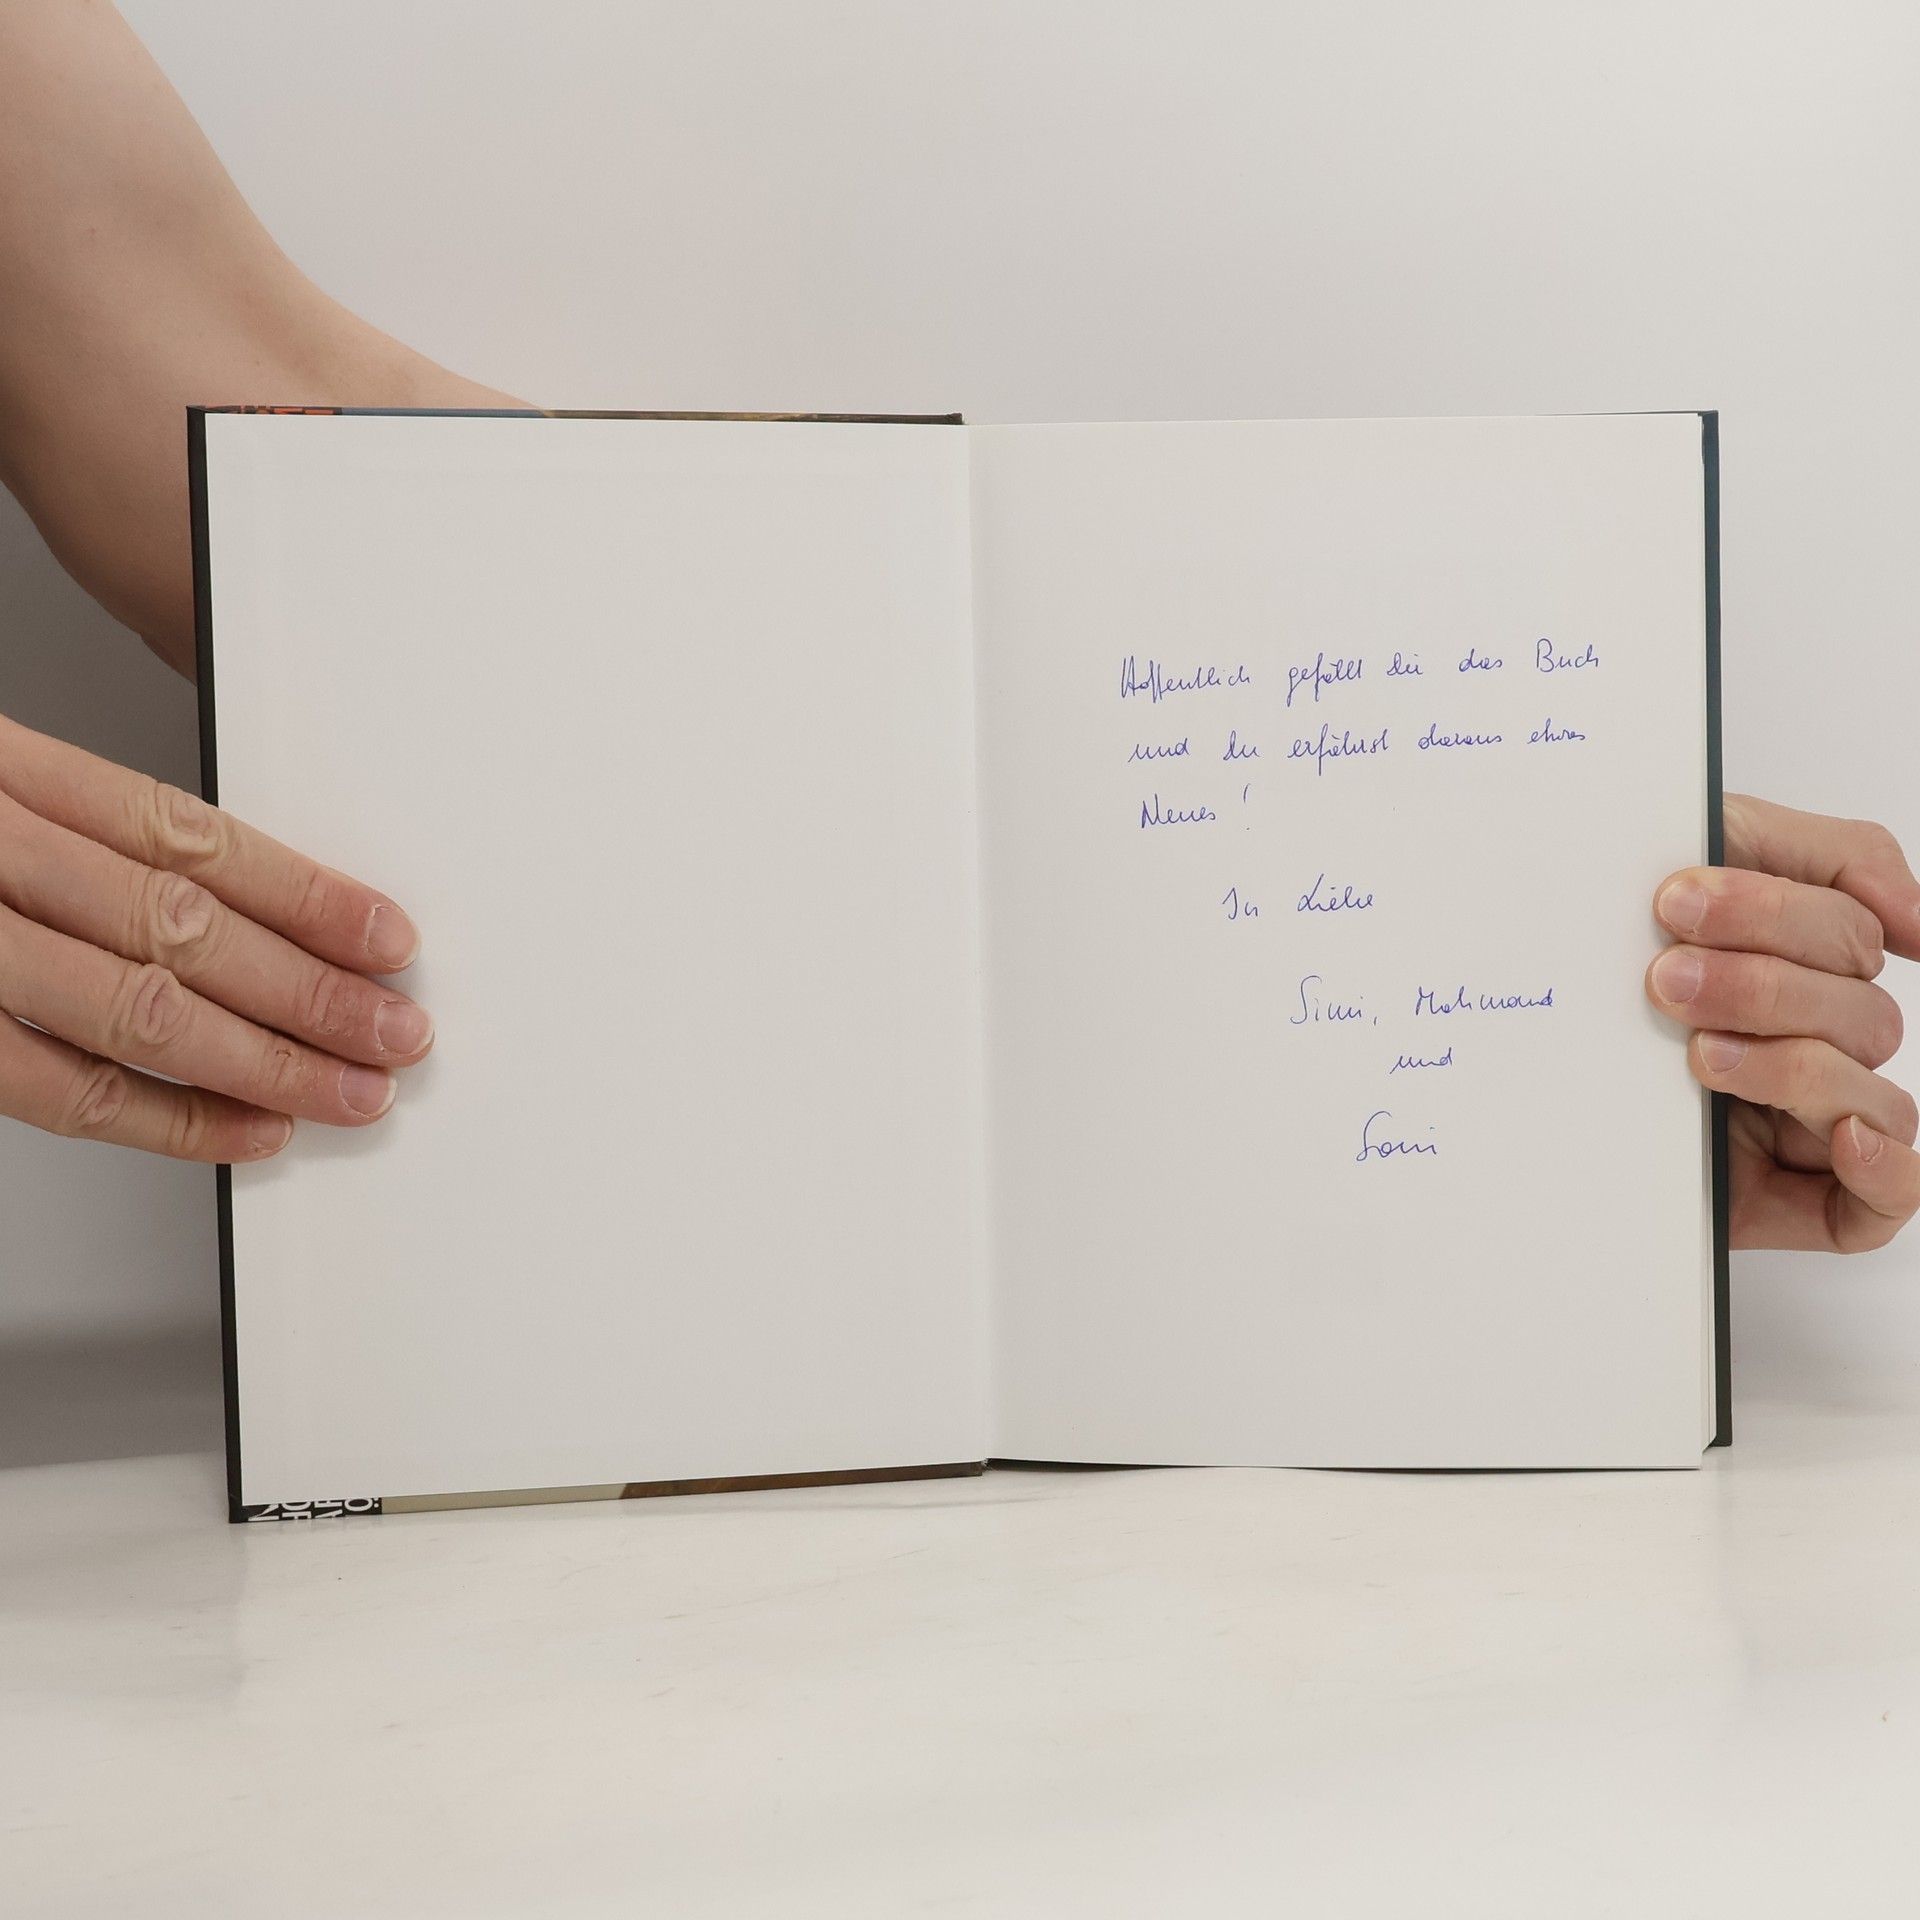 Hoffentlich gefällt Dir das Buch
und Du erfährst daraus etwas
Neues!
In Liebe
Simi, Mahmoud
und
Soni